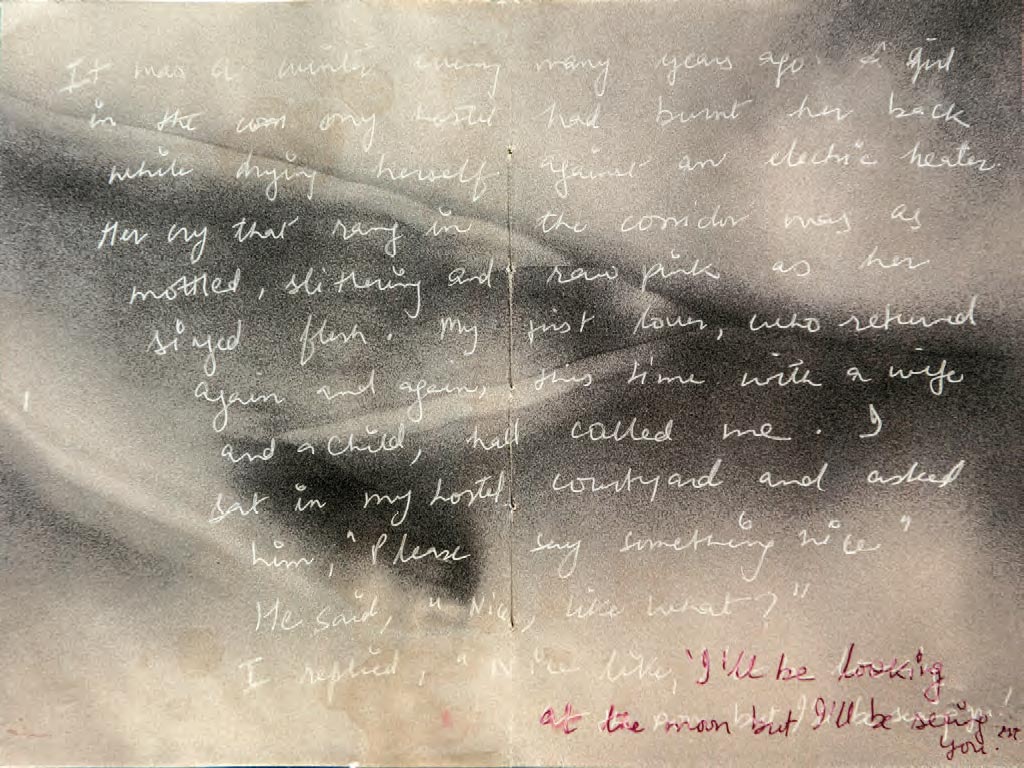 It was a winter evening many years ago. A girl
in the com my hostel had burnt her back
while drying herself against an electric heater.
Her cry that rang in the corridor was as
mottled, slithering and raw pink as her
singed flesh. My first lover, who returned
again and again, this time with a wife
and a child, had called me. I
sat in my hostel courtyard and asked
him, "Please say something nice"
He said, "Nice, like what?"
I replied, "Nice like, 'I'll be looking
at the moon but I'll be seeing
you.'"